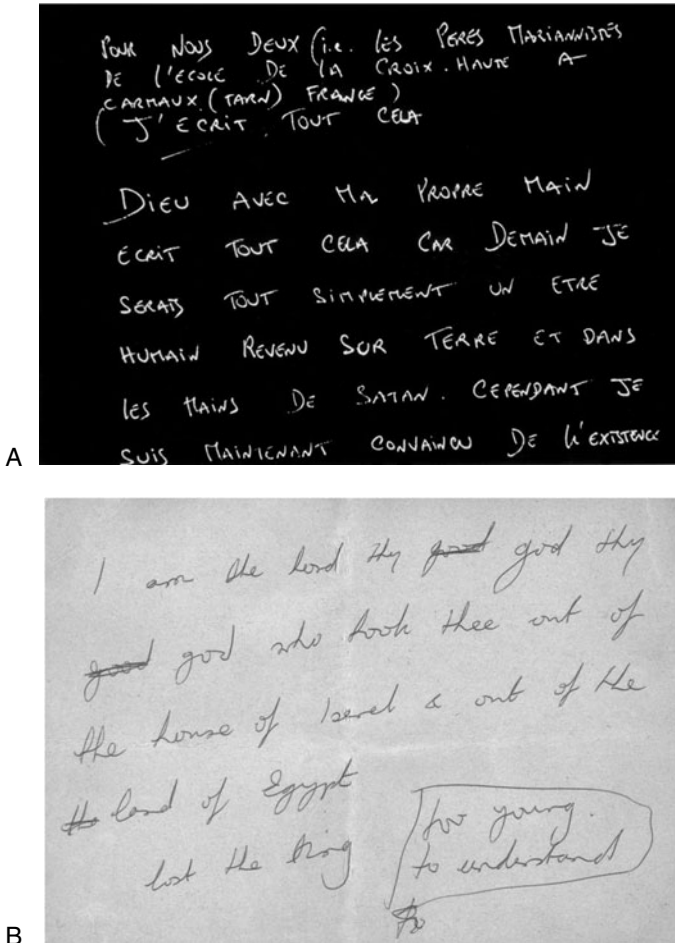 POUR NOUS DEUX (i.e. LES PERES MARIANNISTES
DE L'ECOLE DE LA CROIX.HAUTE A
CARMAUX.(TARN) FRANCE)
(J'ECRIT TOUT CELA
DIEU AVEC MA PROPRE MAIN
ECRIT TOUT CELA CAR DEMAIN JE
SERAIS TOUT SIMPLEMENT UN ETRE
HUMAIN REVENU SUR TERRE ET DANS
LES MAINS DE SATAN. CEPENDANT JE
SUIS MAINTENANT CONVAINCU DE L'EXISTENCE
A
I am the lord thy good god thy
good god who took thee out of
the house of Iserel & out of the
the land of Egypt
lost the thing
too young.
to understand
To
B